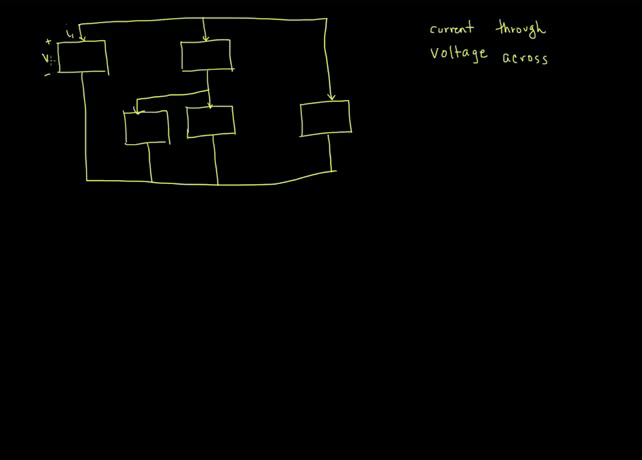 i₁
+
V
-
current through
Voltage across